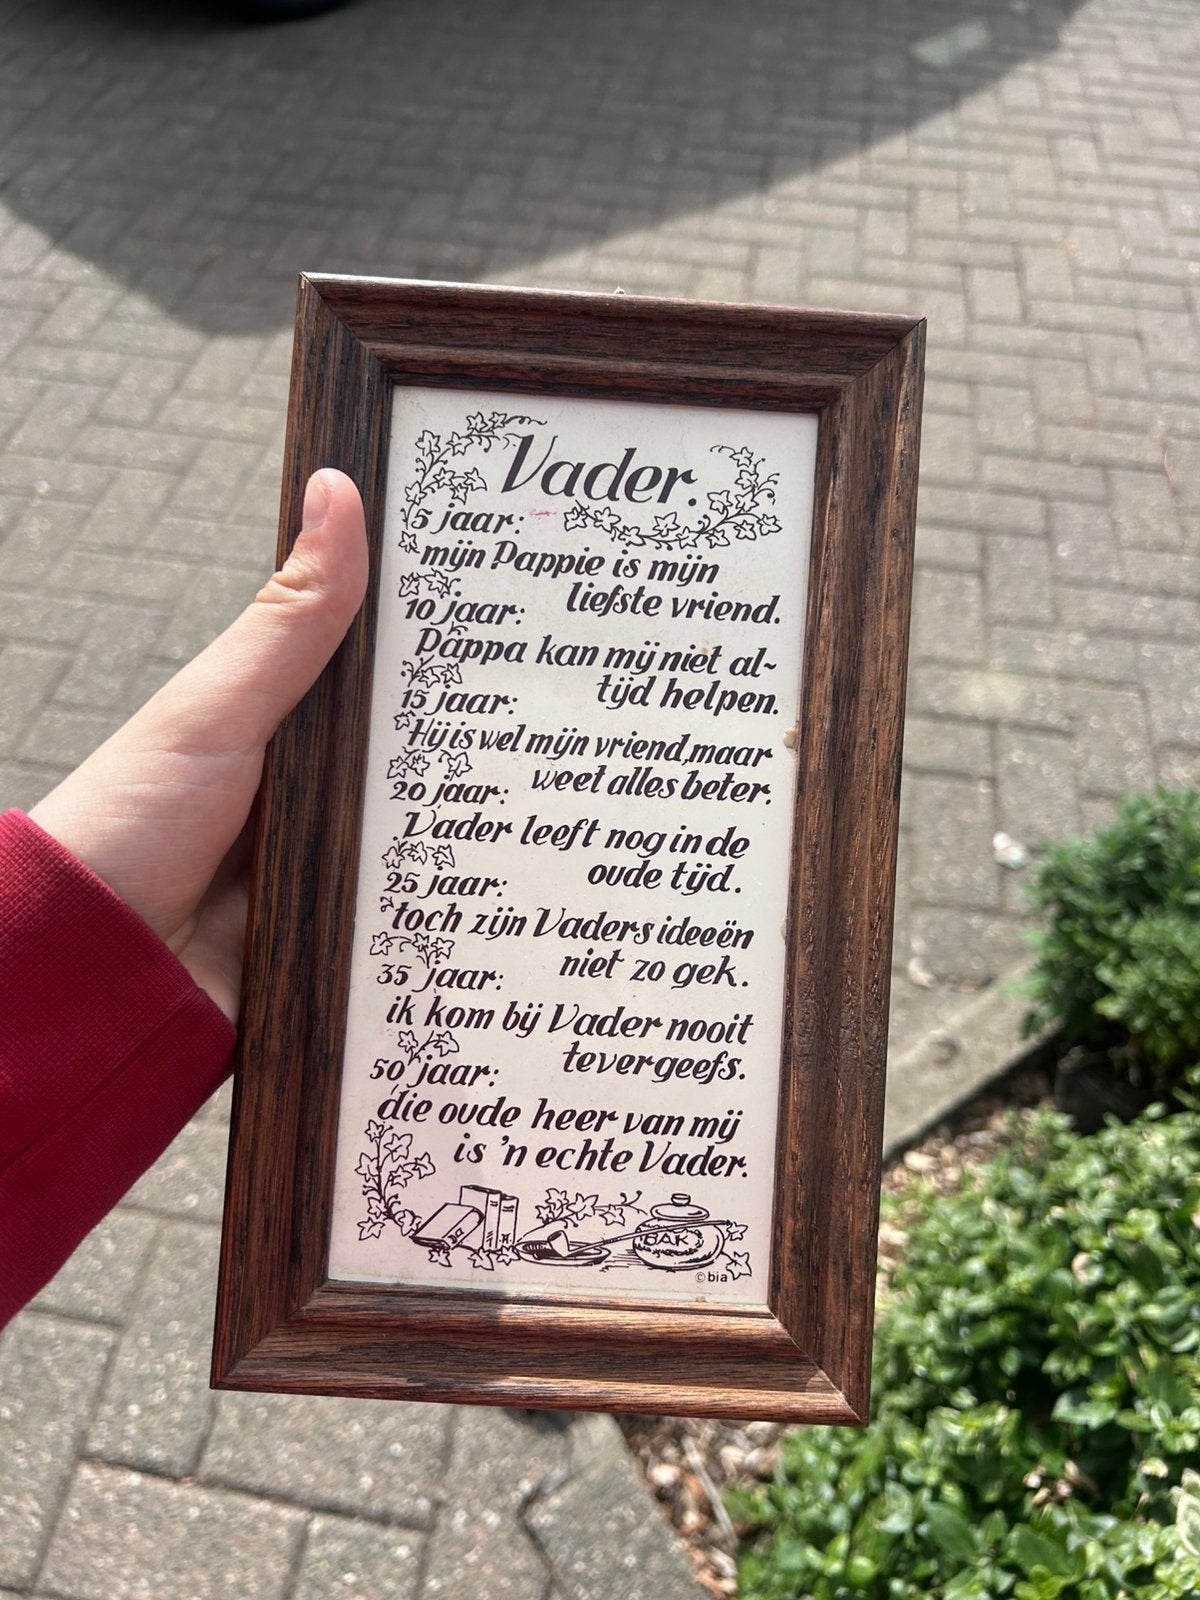 Vader.
5 jaar:
mijn Pappie is mijn
liefste vriend.
10 jaar:
Pappa kan mij niet al~
tijd helpen.
15 jaar:
Hij is wel mijn vriend, maar
weet alles beter.
20 jaar:
Vader leeft nog in de
oude tijd.
25 jaar:
toch zijn Vaders ideeën
niet zo gek.
35 jaar:
ik kom bij Vader nooit
tevergeefs.
50 jaar:
die oude heer van mij
is 'n echte Vader.
BAK
©bia